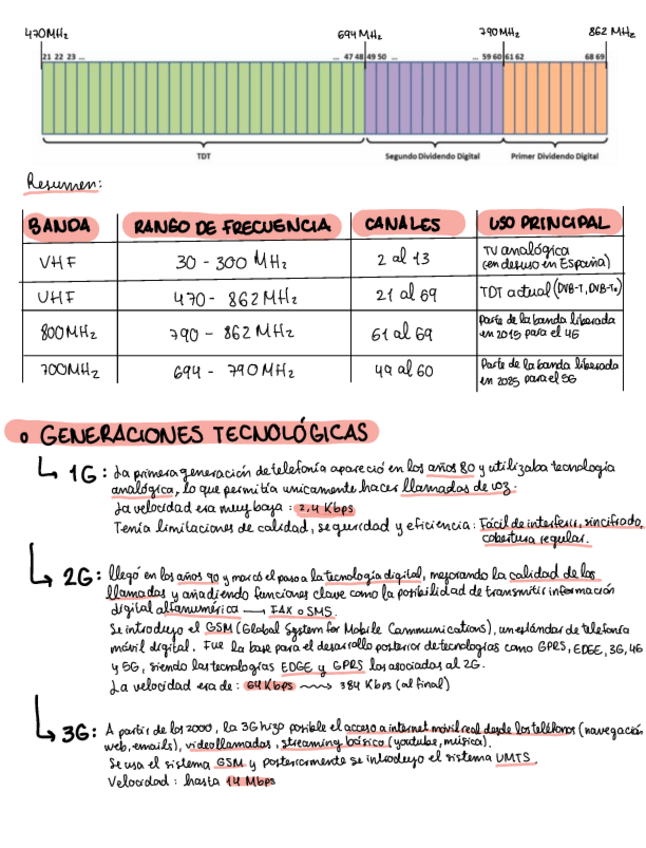 470MHz 694MHz 790MHz 862 MHz
21 22 23 ... ... 47 48 49 50 ... ... 59 60 61 62 68 69
TDT Segundo Dividendo Digital Primer Dividendo Digital
Resumen:
BANDA RANGO DE FRECUENCIA CANALES USO PRINCIPAL
VHF 30 - 300 MHz 2 al 13 TV analógica
(en desuso en España)
UHF 470 - 862 MHz 21 al 69 TDT actual (DVB-T, DVB-T2)
800MHz 790 - 862 MHz 61 al 69 Parte de la banda liberada
en 2015 para el 4G
700MHz 694 - 790 MHz 49 al 60 Parte de la banda liberada
en 2025 para el 5G
GENERACIONES TECNOLÓGICAS
1G: La primera generación de telefonía apareció en los años 80 y utilizaba tecnología
analógica, lo que permitía unicamente hacer llamadas de voz.
La velocidad era muy baja: 2,4 Kbps
Tenía limitaciones de calidad, seguridad y eficiencia: Fácil de interferir, sin cifrado,
cobertura regular.
2G: Llegó en los años 90 y marcó el paso a la tecnología digital, mejorando la calidad de las
llamadas y añadiendo funciones clave como la posibilidad de transmitir información
digital alfanumérica → FAX o SMS.
Se introdujo el GSM (Global System for Mobile Communications), un estándar de telefonía
móvil digital. Fue la base para el desarrollo posterior de tecnologías como GPRS, EDGE, 3G, 4G
y 5G, siendo las tecnologías EDGE y GPRS las asociadas al 2G.
La velocidad era de: 64 Kbps → 384 Kbps (al final)
3G: A partir de los 2000, la 3G hizo posible el acceso a internet móvil real desde los teléfonos (navegación
web, emails), videollamadas, streaming básico (youtube, música).
Se usa el sistema GSM y posteriormente se introdujo el sistema UMTS.
Velocidad: hasta 14 Mbps